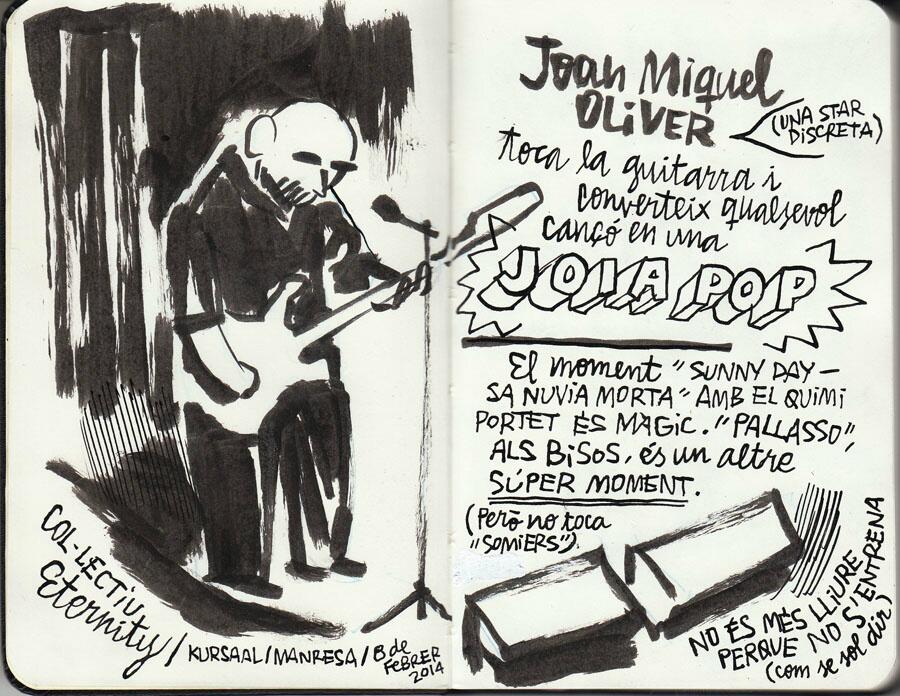 COL·LECTIU
Eternity / KURSAAL / MANRESA / 8 de
FEBRER
2014
Joan Miquel
OLIVER
(UNA STAR
DISCRETA)
toca la guitarra i
converteix qualsevol
cançó en una
JOIA POP
El moment "SUNNY DAY –
SA NUVIA MORTA" AMB EL QUIMI
PORTET ÉS MÀGIC. "PALLASSO",
ALS BISOS, és un altre
SÚPER MOMENT.
(Però no toca
"SOMIERS").
NO ÉS MÉS LLIURE
PERQUE NO S'ENTRENA
(com se sol dir)